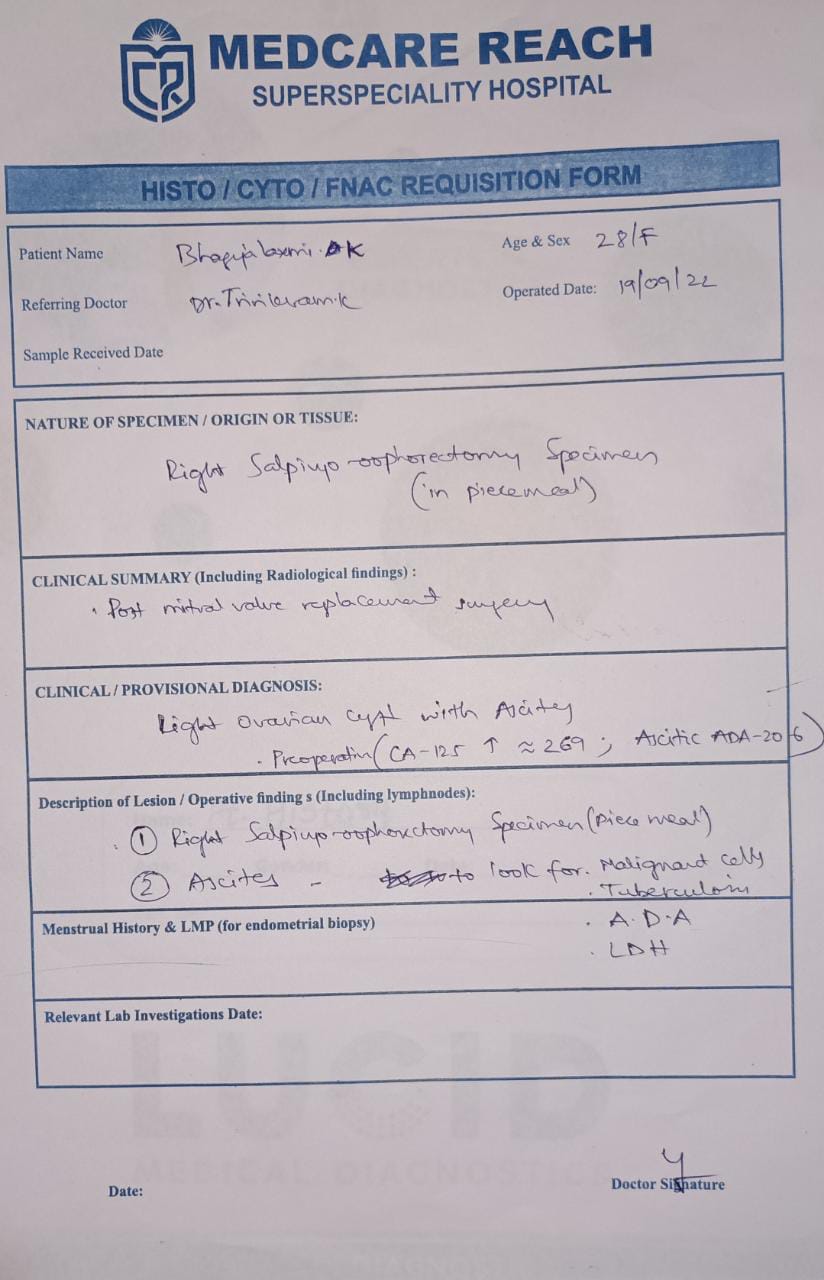 MEDCARE REACH
SUPERSPECIALITY HOSPITAL
HISTO / CYTO / FNAC REQUISITION FORM
Patient Name Bhagyalaxmi. K
Age & Sex 28/F
Referring Doctor Dr. Trivikram.K
Operated Date: 19/09/22
Sample Received Date
NATURE OF SPECIMEN / ORIGIN OR TISSUE:
Right Salpingo-oophorectomy Specimen
(in piecemeal)
CLINICAL SUMMARY (Including Radiological findings) :
. Post mitral valve replacement surgery
CLINICAL / PROVISIONAL DIAGNOSIS:
Right ovarian cyst with Ascites
. Preoperative (CA-125 ↑ ≈ 269 ; Ascitic ADA-20.6)
Description of Lesion / Operative finding s (Including lymphnodes):
① Right Salpingo-oophorectomy Specimen (piece meal)
② Ascites - to look for . Malignant cells
. Tuberculosis
Menstrual History & LMP (for endometrial biopsy)
. A.D.A
. LDH
Relevant Lab Investigations Date:
LUCID
MEDICAL DIAGNOSTICS
Date:
Doctor Signature